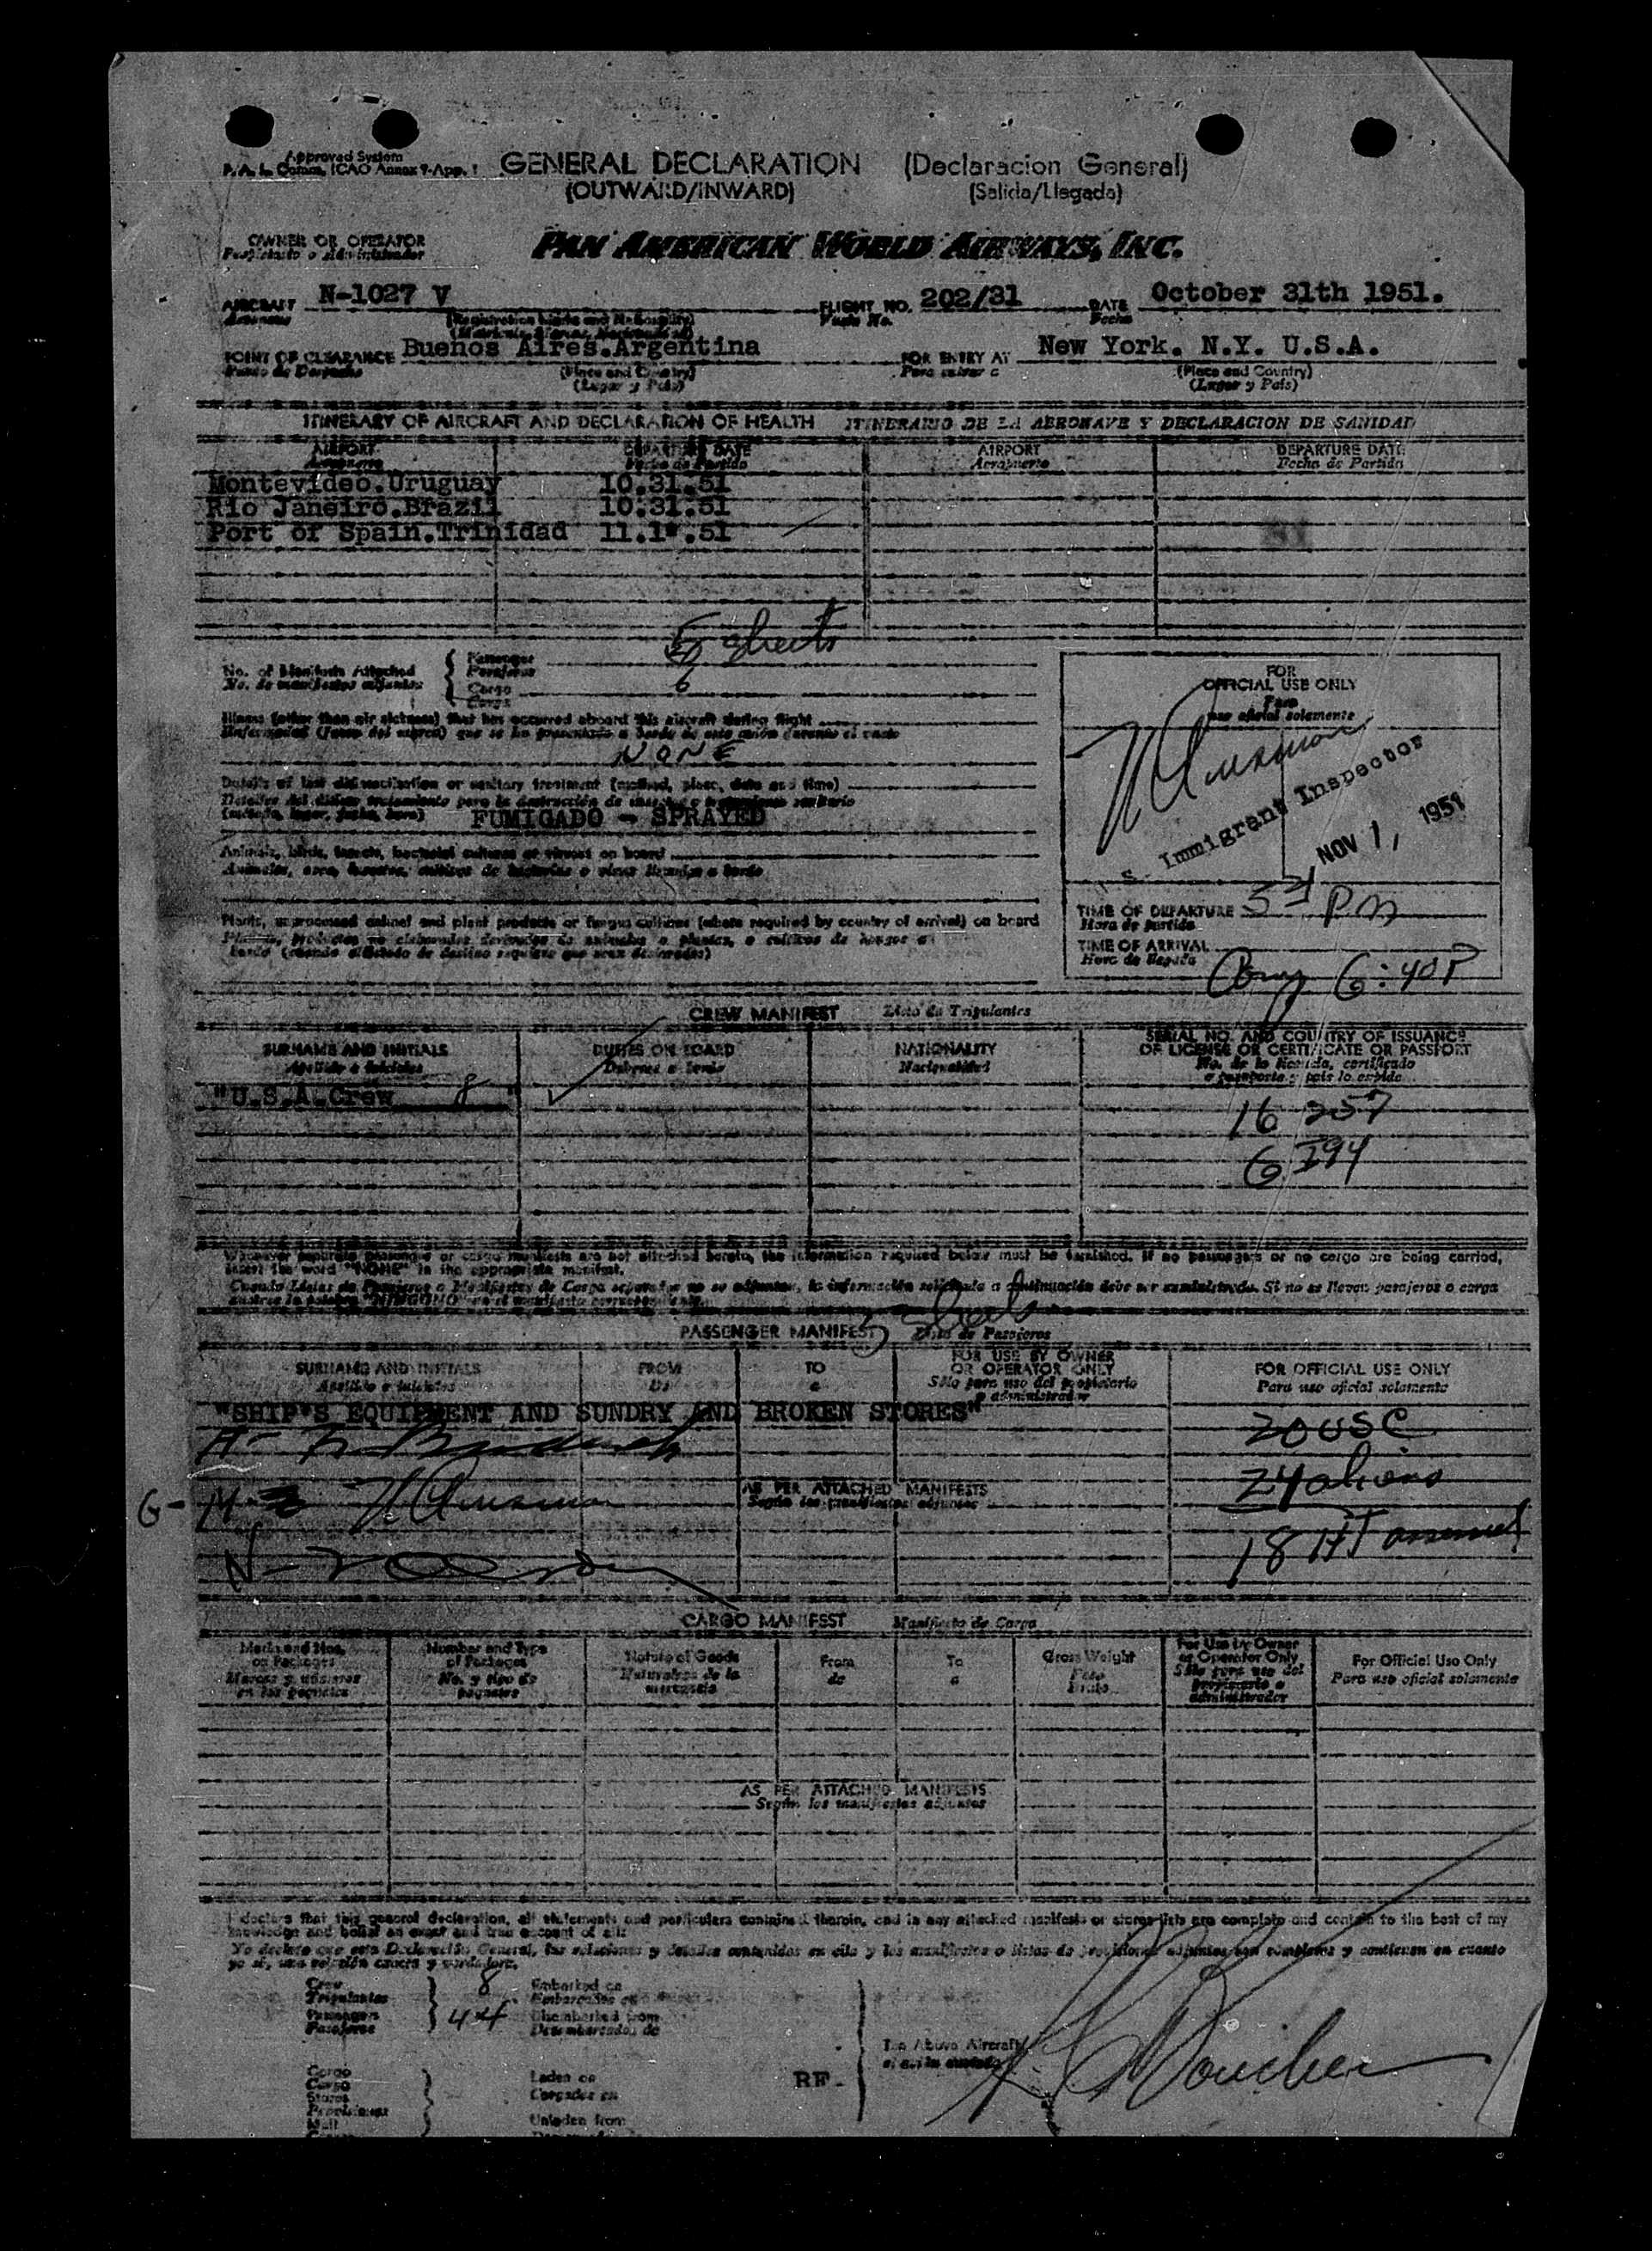 Approved System
P. A. L. Comm. ICAO Annex 9-App. 1
GENERAL DECLARATION (Declaracion General)
(OUTWARD/INWARD) (Salida/Llegada)
OWNER OR OPERATOR
Propietario o Administrador
PAN AMERICAN WORLD AIRWAYS, INC.
AIRCRAFT N-1027 V FLIGHT NO. 202/31 DATE October 31th 1951.
Aeronave (Registration Marks and Nationality) Vuelo No. Fecha
POINT OF CLEARANCE Buenos Aires.Argentina FOR ENTRY AT New York. N.Y. U.S.A.
Punto de Despacho (Place and Country) Para entrar a (Place and Country)
(Lugar y País) (Lugar y País)
ITINERARY OF AIRCRAFT AND DECLARATION OF HEALTH ITINERARIO DE LA AERONAVE Y DECLARACION DE SANIDAD
AIRPORT DEPARTURE DATE AIRPORT DEPARTURE DATE
Aeropuerto Fecha de Partida Aeropuerto Fecha de Partida
Montevideo.Uruguay 10.31.51
Rio Janeiro.Brazil 10.31.51
Port of Spain.Trinidad 11.1 .51
5 sheets
No. of Manifests Attached Passenger
No. de manifiestos adjuntos Pasajeros
Cargo 6
Carga
FOR
OFFICIAL USE ONLY
Para
uso oficial solamente
Illness (other than air sickness) that has occurred aboard this aircraft during flight
NONE
Details of last disinsectisation or sanitary treatment (method, place, date and time)
FUMIGADO - SPRAYED
Immigrant Inspector
NOV 1, 1951
Animals, birds, insects, bacterial cultures or viruses on board
Plants, unprocessed animal and plant products or fungus cultures (where required by country of arrival) on board
TIME OF DEPARTURE PM
Hora de partida
TIME OF ARRIVAL 6:40P
Hora de llegada
CREW MANIFEST Lista de Tripulantes
SURNAME AND INITIALS DUTIES ON BOARD NATIONALITY SERIAL NO. AND COUNTRY OF ISSUANCE
OF LICENSE OR CERTIFICATE OR PASSPORT
Apellido e iniciales Deberes a bordo Nacionalidad No. de la licencia, certificado
o pasaporte y país lo expide
"U.S.A.Crew 8 "
16 257
6 394
Whenever separate passenger or cargo manifests are not attached hereto, the information required below must be furnished. If no passengers or no cargo are being carried,
insert the word "NONE" in the appropriate manifest.
Cuando Listas de Pasajeros o Manifiestos de Carga separados no se adjuntan, la información solicitada a continuación debe ser suministrada. Si no se llevan pasajeros o carga
5 sheets
PASSENGER MANIFEST Lista de Pasajeros
SURNAME AND INITIALS FROM TO FOR USE BY OWNER
OR OPERATOR ONLY FOR OFFICIAL USE ONLY
Apellido e iniciales De a Sólo para uso del propietario
o administrador Para uso oficial solamente
"SHIP'S EQUIPMENT AND SUNDRY AND BROKEN STORES"
20 USC
24 aliens
AS PER ATTACHED MANIFESTS
Según los manifiestos adjuntos
18 HT assessed
CARGO MANIFEST Manifiesto de Carga
Marks and Nos.
on Packages Number and Type
of Packages Nature of Goods From To Gross Weight For Use by Owner
or Operator Only For Official Use Only
Marcas y números
en los paquetes No. y tipo de
paquetes Naturaleza de la
mercancía de a Peso
Bruto Sólo para uso del
propietario o
administrador Para uso oficial solamente
AS PER ATTACHED MANIFESTS
Según los manifiestos adjuntos
I declare that this general declaration, all statements and particulars contained therein, and in any attached manifests or stores-lists are complete and contain to the best of my
knowledge and belief an exact and true account of all:
Crew 8 Embarked on
Tripulantes Embarcados en
Passengers 44 Disembarked from
Pasajeros Desembarcados de
The Above Aircraft
Cargo Laden on
Carga Cargados en
RF.
Stores
Provisiones
Mail Unladen from